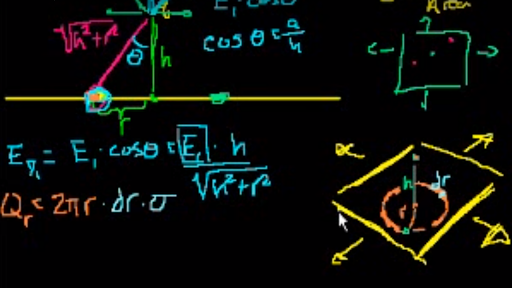 E₁ · cosθ
Area
√h²+r²
θ
h
cos θ = a/h
r
E_y₁ = E₁ · cosθ = E₁ · h/√h²+r²
Q_r = 2πr · dr · σ
h
dr
r